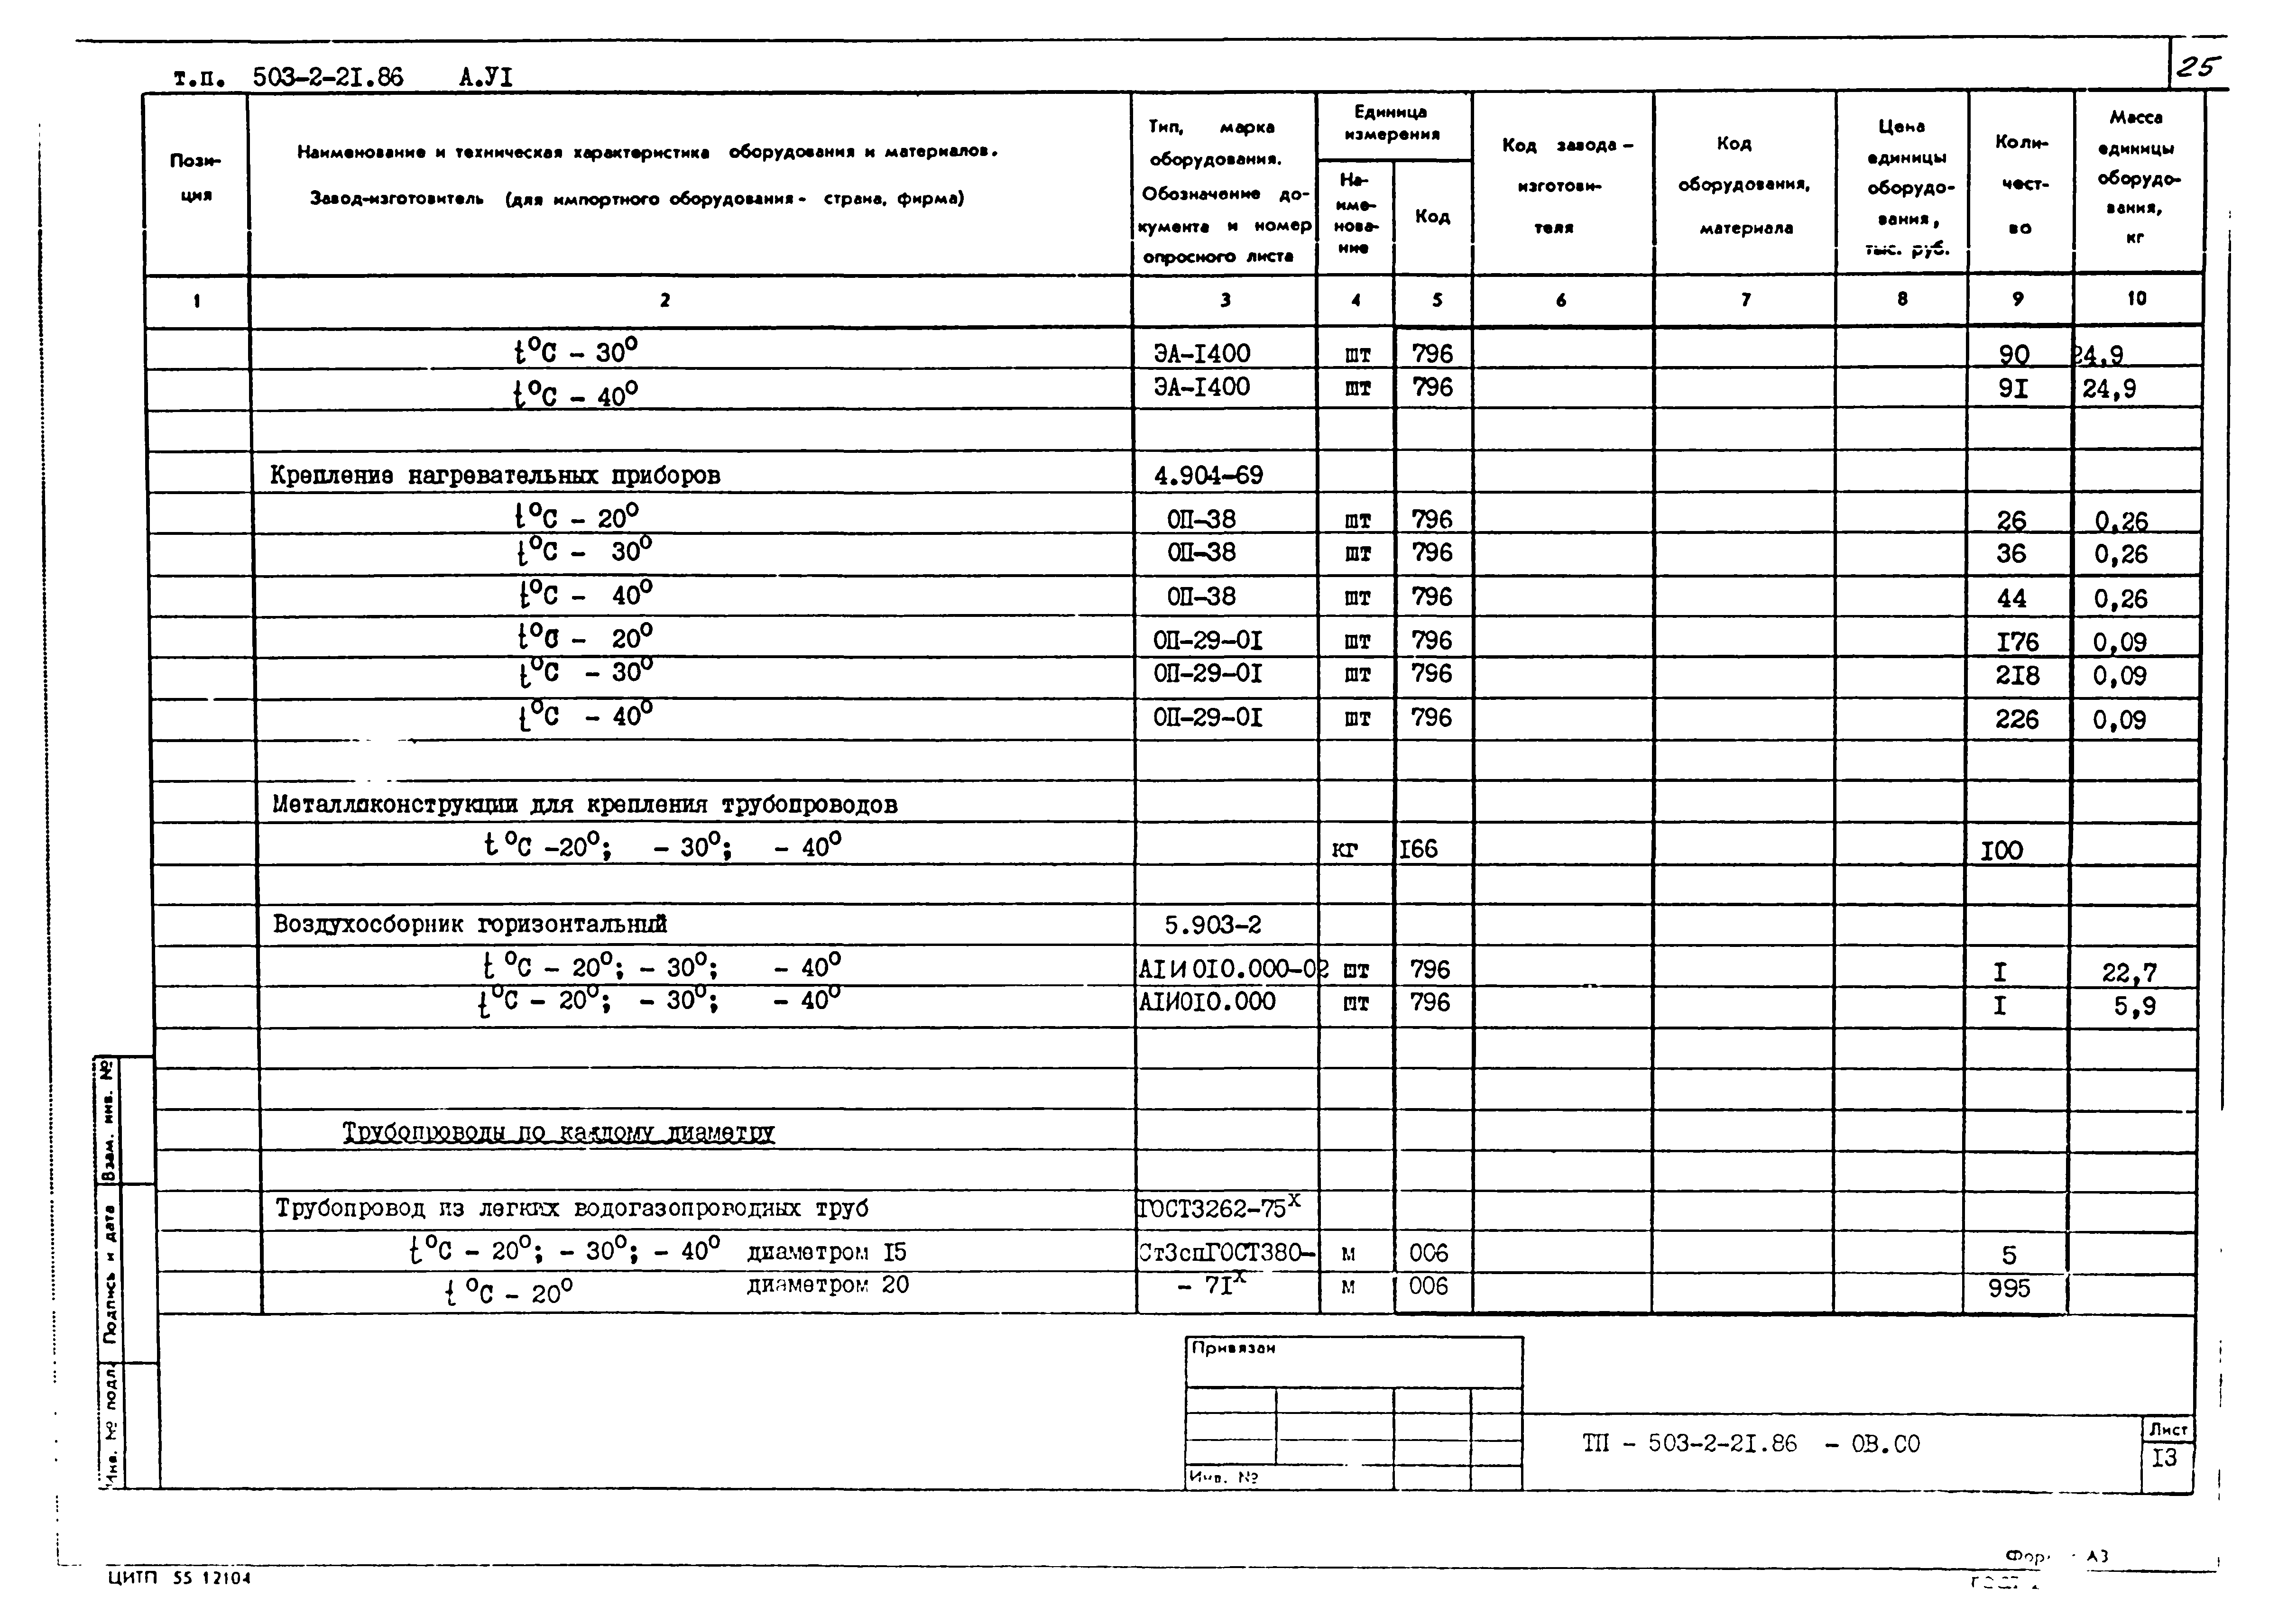 25
т.п. 503-2-2I.86 А.УI
Пози-
ция
Наименование и техническая характеристика оборудования и материалов.
Завод-изготовитель (для импортного оборудования - страна, фирма)
Тип, марка
оборудования.
Обозначение до-
кумента и номер
опросного листа
Единица
измерения
На-
име-
нова-
ние
Код
Код завода-
изготови-
теля
Код
оборудования,
материала
Цена
единицы
оборудо-
вания,
тыс. руб.
Коли-
чест-
во
Масса
единицы
оборудо-
вания,
кг
1 2 3 4 5 6 7 8 9 10
t°C - 30° ЭА-I400 шт 796 90 24,9
t°C - 40° ЭА-I400 шт 796 9I 24,9
Крепление нагревательных приборов 4.904-69
t°C - 20° ОП-38 шт 796 26 0,26
t°C - 30° ОП-38 шт 796 36 0,26
t°C - 40° ОП-38 шт 796 44 0,26
t°C - 20° ОП-29-0I шт 796 I76 0,09
t°C - 30° ОП-29-0I шт 796 2I8 0,09
t°C - 40° ОП-29-0I шт 796 226 0,09
Металлоконструкции для крепления трубопроводов
t°C -20°; - 30°; - 40° кг I66 I00
Воздухосборник горизонтальный 5.903-2
t°C - 20°; - 30°; - 40° АIИ0I0.000-02 шт 796 I 22,7
t°C - 20°; - 30°; - 40° АIИ0I0.000 шт 796 I 5,9
Трубопроводы по каждому диаметру
Трубопровод из легких водогазопроводных труб ГОСТ3262-75х
t°C - 20°; - 30°; - 40° диаметром I5 Ст3спГОСТ380- м 006 5
t°C - 20° диаметром 20 - 7Iх м 006 995
Взам. инв. №
Подпись и дата
Инв. № подл.
Привязан
Инв. №
ТП - 503-2-2I.86 - ОВ.СО
Лист
I3
ЦИТП 55 12104
А3